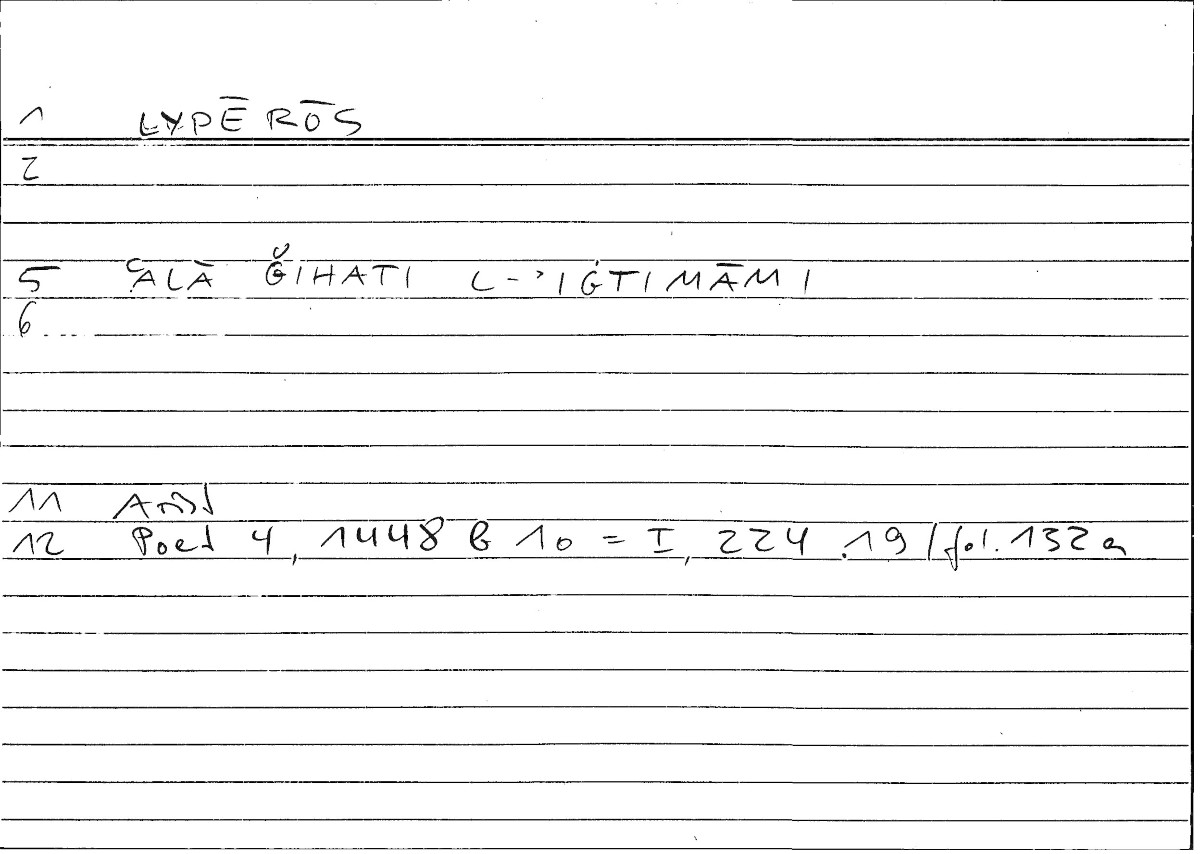 1 LYPĒRŌS
2
5 ʿALĀ ǦIHATI L-ʾIĠTIMĀMI
6
11 Arist
12 Poet 4, 1448 b 10 = I, 224.19 / fol. 132a